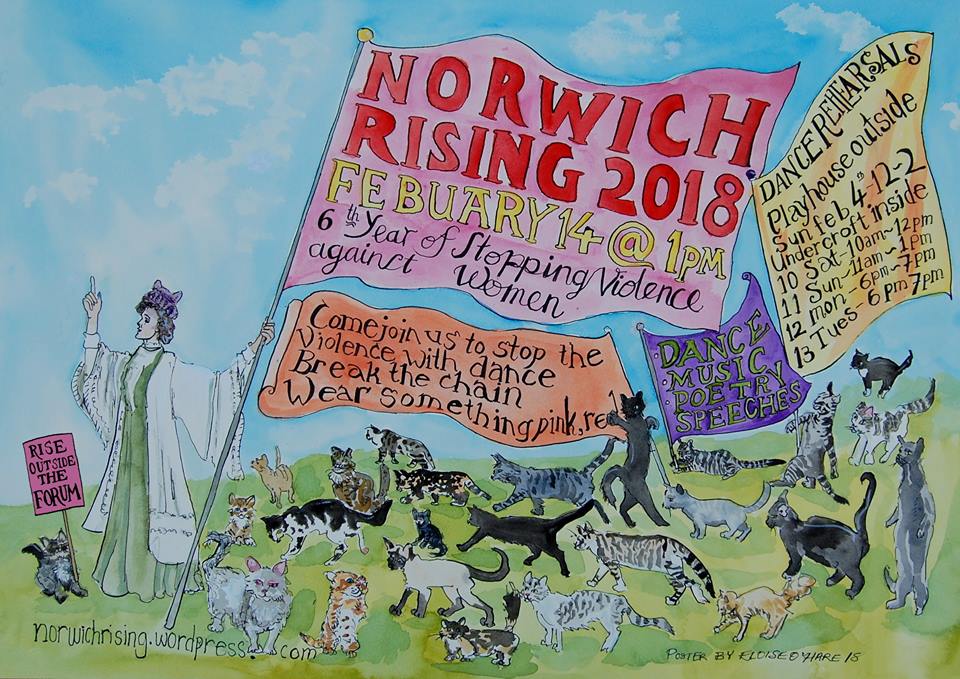 NORWICH
RISING 2018
FEBUARY 14 @ 1PM
6th Year of Stopping Violence
against Women
DANCE REHEARSALS
Playhouse outside
Sun feb 4th 12-2
Undercroft inside
10 Sat-10am-12pm
11 Sun-11am-1pm
12 mon-6pm-7pm
13 Tues-6pm 7pm
Come join us to stop the
Violence, with dance
Break the chain
Wear something pink, red
DANCE
MUSIC
POETRY
SPEECHES
RISE
OUTSIDE
THE
FORUM
norwichrising.wordpress.com
POSTER BY ELOISE O'HARE 18